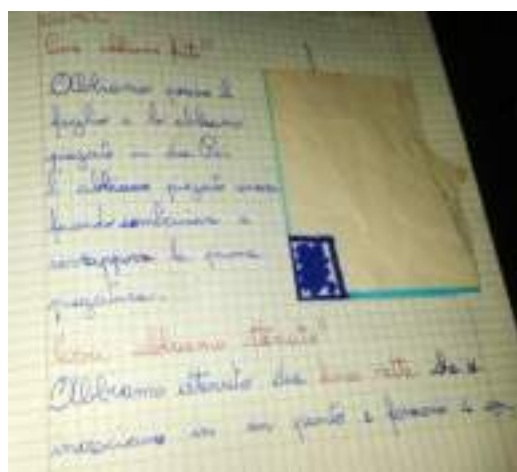 Cosa abbiamo fatto?
Abbiamo preso il
foglio e lo abbiamo
piegato in due. Poi
l' abbiamo piegato
facendo combaciare e
sovrapporre la prima
piegatura.
Cosa abbiamo ottenuto?
Abbiamo ottenuto due linee rette che si
incrociano in un punto e formano 4